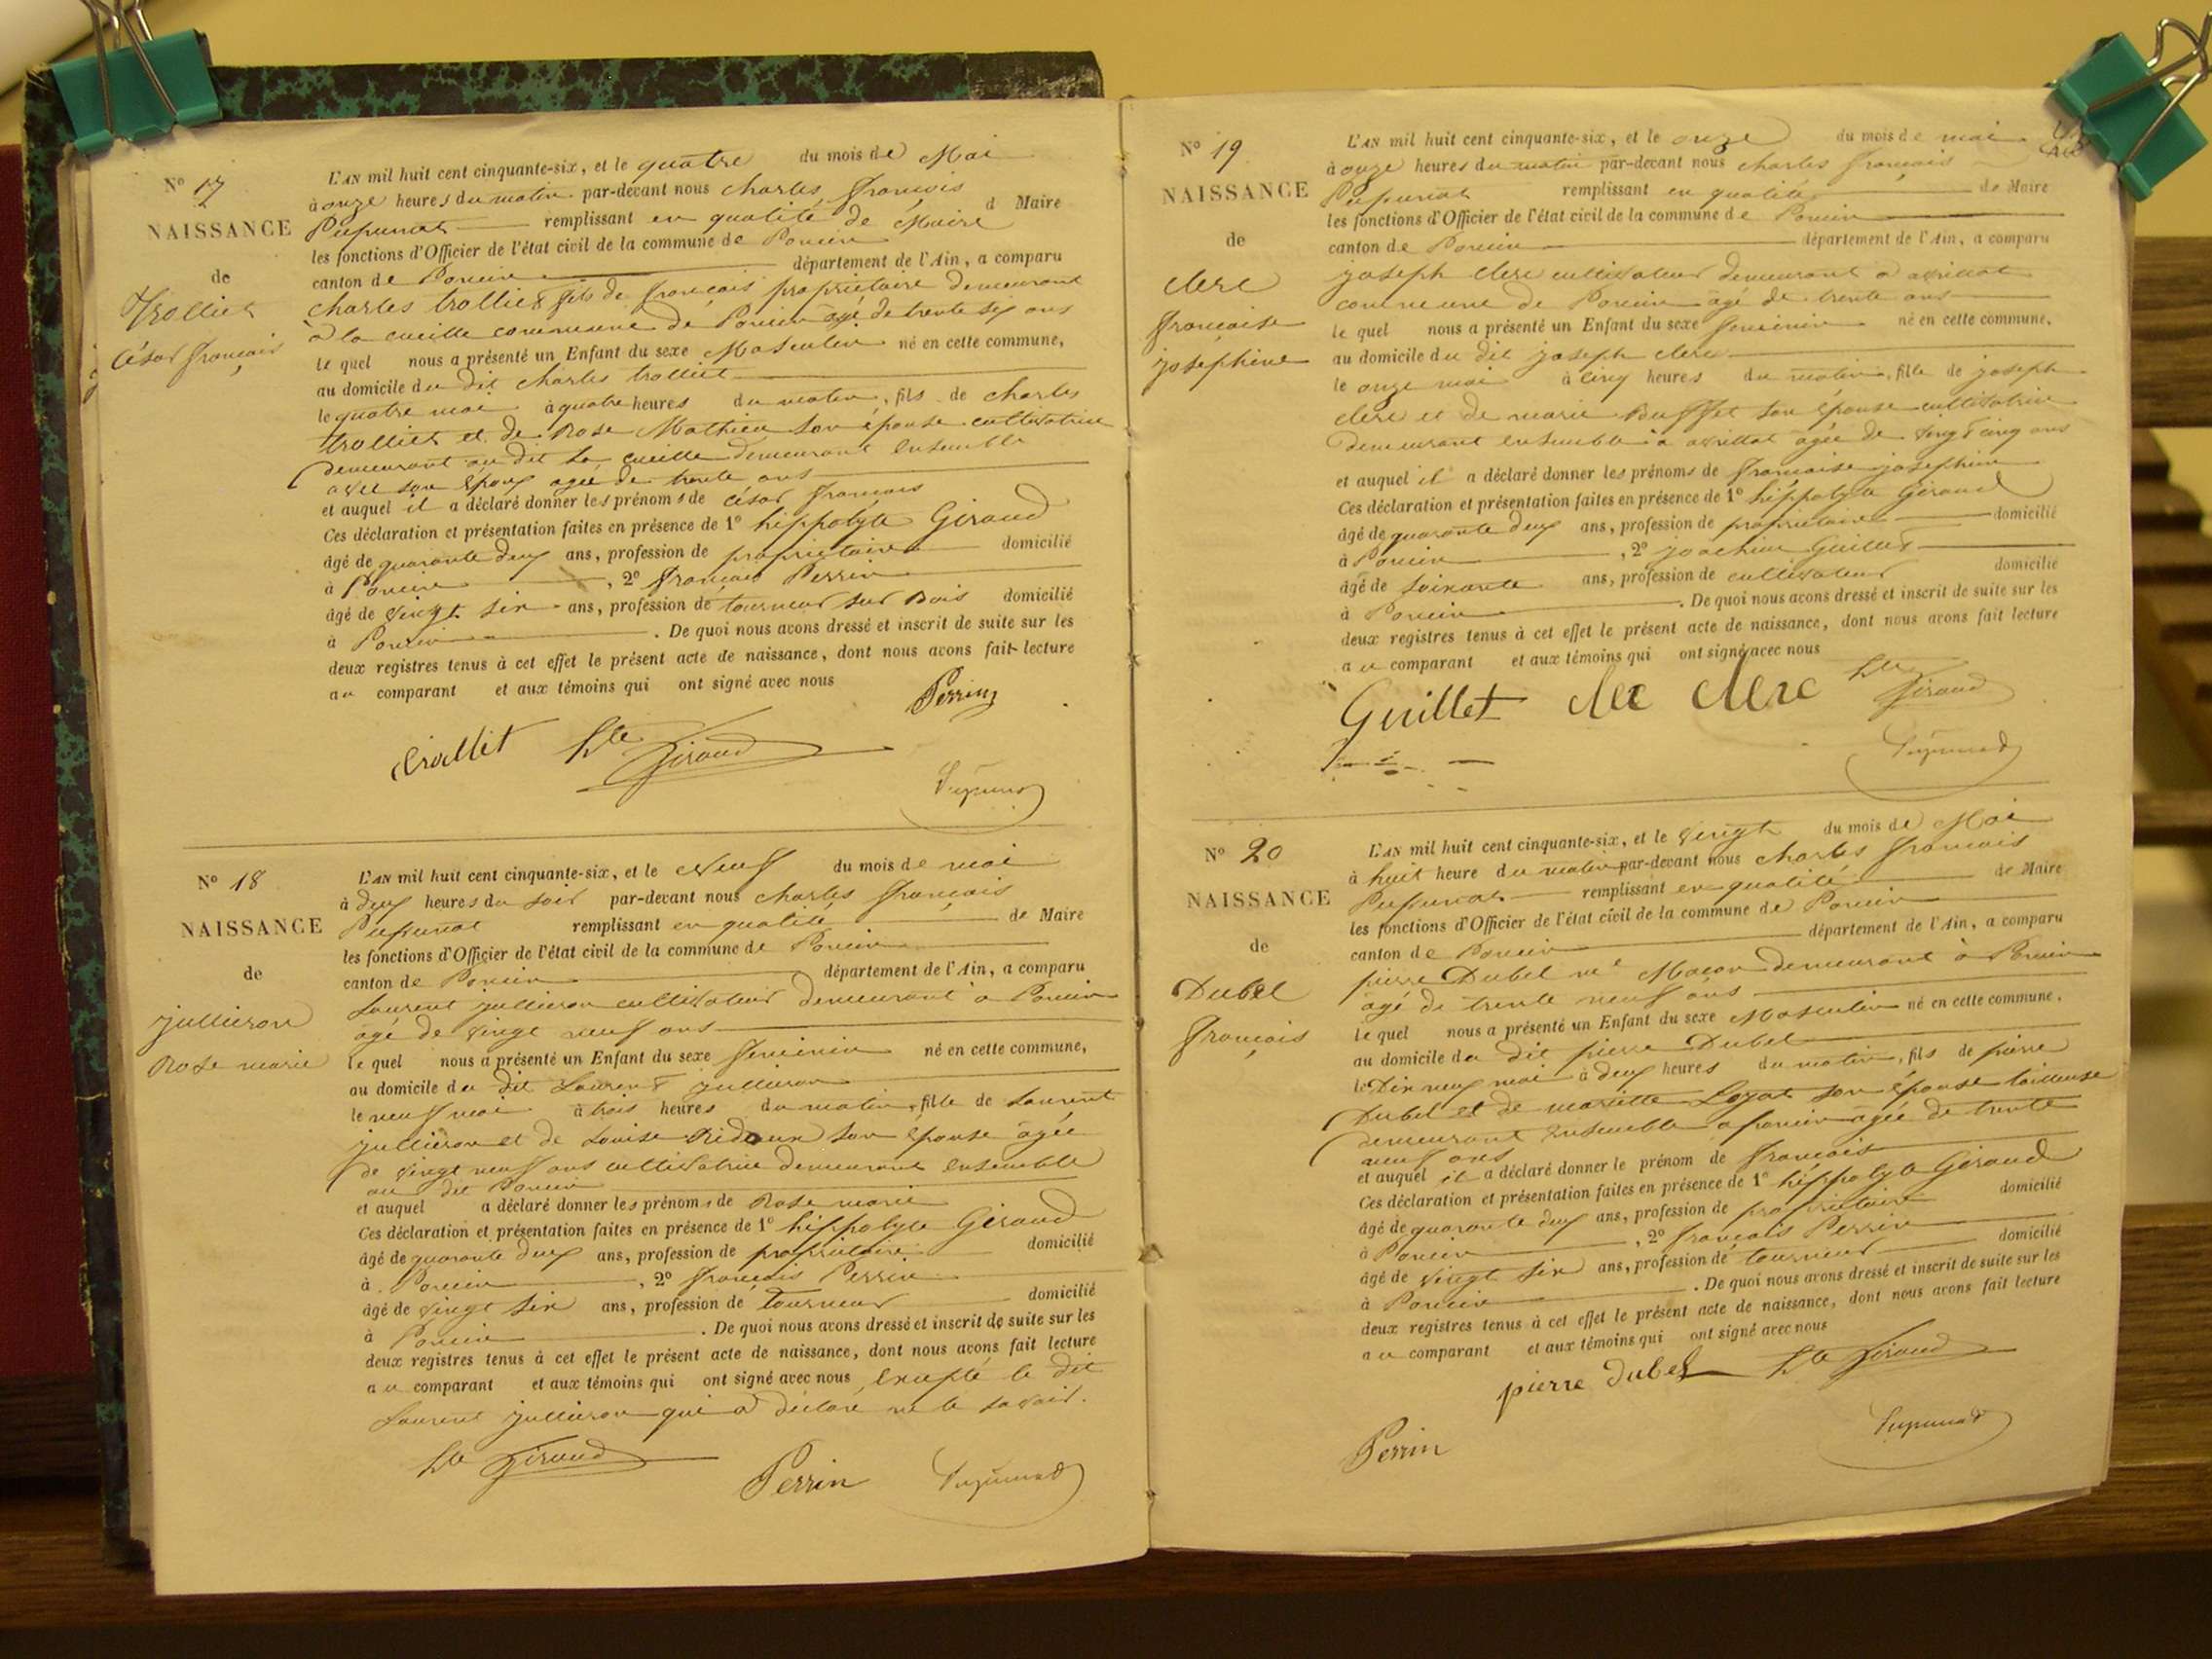 N° 17
NAISSANCE
de
Trolliet
César françois
L'AN mil huit cent cinquante-six, et le quatre du mois de Mai
à onze heures du matin par-devant nous charles françois
Pupunat remplissant en qualité de Maire d Maire
les fonctions d'Officier de l'état civil de la commune de Poncin
canton de Poncin département de l'Ain, a comparu
charles trolliet fils de françois propriétaire demeurant
à la cueille commune de Poncin agé de trente six ans
le quel nous a présenté un Enfant du sexe Masculin né en cette commune,
au domicile du dit charles trolliet
le quatre mai à quatre heures du matin, fils de charles
trolliet et de Rose Mathieu son épouse cultivatrice
demeurant au dit la cueille demeurant ensemble
avec son époux agée de trente ans
et auquel il a déclaré donner les prénoms de César françois
Ces déclaration et présentation faites en présence de 1° hippolyte Giraud
âgé de quarante deux ans, profession de propriétaire domicilié
à Poncin, 2° françois Perrin
âgé de vingt six ans, profession de tourneur sur Bois domicilié
à Poncin. De quoi nous avons dressé et inscrit de suite sur les
deux registres tenus à cet effet le présent acte de naissance, dont nous avons fait lecture
au comparant et aux témoins qui ont signé avec nous
Perrin
trolliet hte Giraud
Pupunat
N° 18
NAISSANCE
de
jullieron
Rose marie
L'AN mil huit cent cinquante-six, et le Neuf du mois de mai
à deux heures du soir par-devant nous charles françois
Pupunat remplissant en qualité de Maire
les fonctions d'Officier de l'état civil de la commune de Poncin
canton de Poncin département de l'Ain, a comparu
Laurent jullieron cultivateur demeurant à Poncin
agé de vingt neuf ans
le quel nous a présenté un Enfant du sexe feminin né en cette commune,
au domicile du dit Laurent jullieron
le neuf mai à trois heures du matin, fille de Laurent
jullieron et de Louise son épouse agée
de vingt neuf ans cultivatrice demeurant ensemble
au dit Poncin
et auquel a déclaré donner les prénoms de Rose marie
Ces déclaration et présentation faites en présence de 1° hippolyte Giraud
âgé de quarante deux ans, profession de propriétaire domicilié
à Poncin, 2° françois Perrin
âgé de vingt six ans, profession de Tourneur domicilié
à Poncin. De quoi nous avons dressé et inscrit de suite sur les
deux registres tenus à cet effet le présent acte de naissance, dont nous avons fait lecture
au comparant et aux témoins qui ont signé avec nous, Excepté le dit
Laurent jullieron qui a déclaré ne le savoir.
hte Giraud Perrin Pupunat
N° 19
NAISSANCE
de
clerc
françoise
joséphine
L'AN mil huit cent cinquante-six, et le onze du mois de mai
à onze heures du matin par-devant nous charles françois
Pupunat remplissant en qualité de Maire
les fonctions d'Officier de l'état civil de la commune de Poncin
canton de Poncin département de l'Ain, a comparu
joseph clerc cultivateur demeurant à avrillat
commune de Poncin agé de trente ans
le quel nous a présenté un Enfant du sexe feminin né en cette commune,
au domicile du dit joseph clerc
le onze mai à cinq heures du matin, fille de joseph
clerc et de marie Buffet son épouse cultivatrice
demeurant ensemble à avrillat agée de vingt cinq ans
et auquel il a déclaré donner les prénoms de françoise joséphine
Ces déclaration et présentation faites en présence de 1° hippolyte Giraud
âgé de quarante deux ans, profession de propriétaire domicilié
à Poncin, 2° joachim Guillet
âgé de soixante ans, profession de cultivateur domicilié
à Poncin. De quoi nous avons dressé et inscrit de suite sur les
deux registres tenus à cet effet le présent acte de naissance, dont nous avons fait lecture
au comparant et aux témoins qui ont signé avec nous
Guillet clerc hte Giraud
Pupunat
N° 20
NAISSANCE
de
Dubel
françois
L'AN mil huit cent cinquante-six, et le vingt du mois de Mai
à huit heure du matin par-devant nous charles françois
Pupunat remplissant en qualité de Maire
les fonctions d'Officier de l'état civil de la commune de Poncin
canton de Poncin département de l'Ain, a comparu
pierre Dubel me Maçon demeurant à Poncin
agé de trente neuf ans
le quel nous a présenté un Enfant du sexe Masculin né en cette commune,
au domicile du dit pierre Dubel
le Dix neuf mai à deux heures du matin, fils de pierre
Dubel et de mariette son épouse tailleuse
demeurant Ensemble à poncin agée de trente
neuf ans
et auquel il a déclaré donner le prénom de françois
Ces déclaration et présentation faites en présence de 1° hippolyte Giraud
âgé de quarante deux ans, profession de propriétaire domicilié
à Poncin, 2° françois Perrin
âgé de vingt six ans, profession de tourneur domicilié
à Poncin. De quoi nous avons dressé et inscrit de suite sur les
deux registres tenus à cet effet le présent acte de naissance, dont nous avons fait lecture
au comparant et aux témoins qui ont signé avec nous
pierre Dubel hte Giraud
Perrin Pupunat